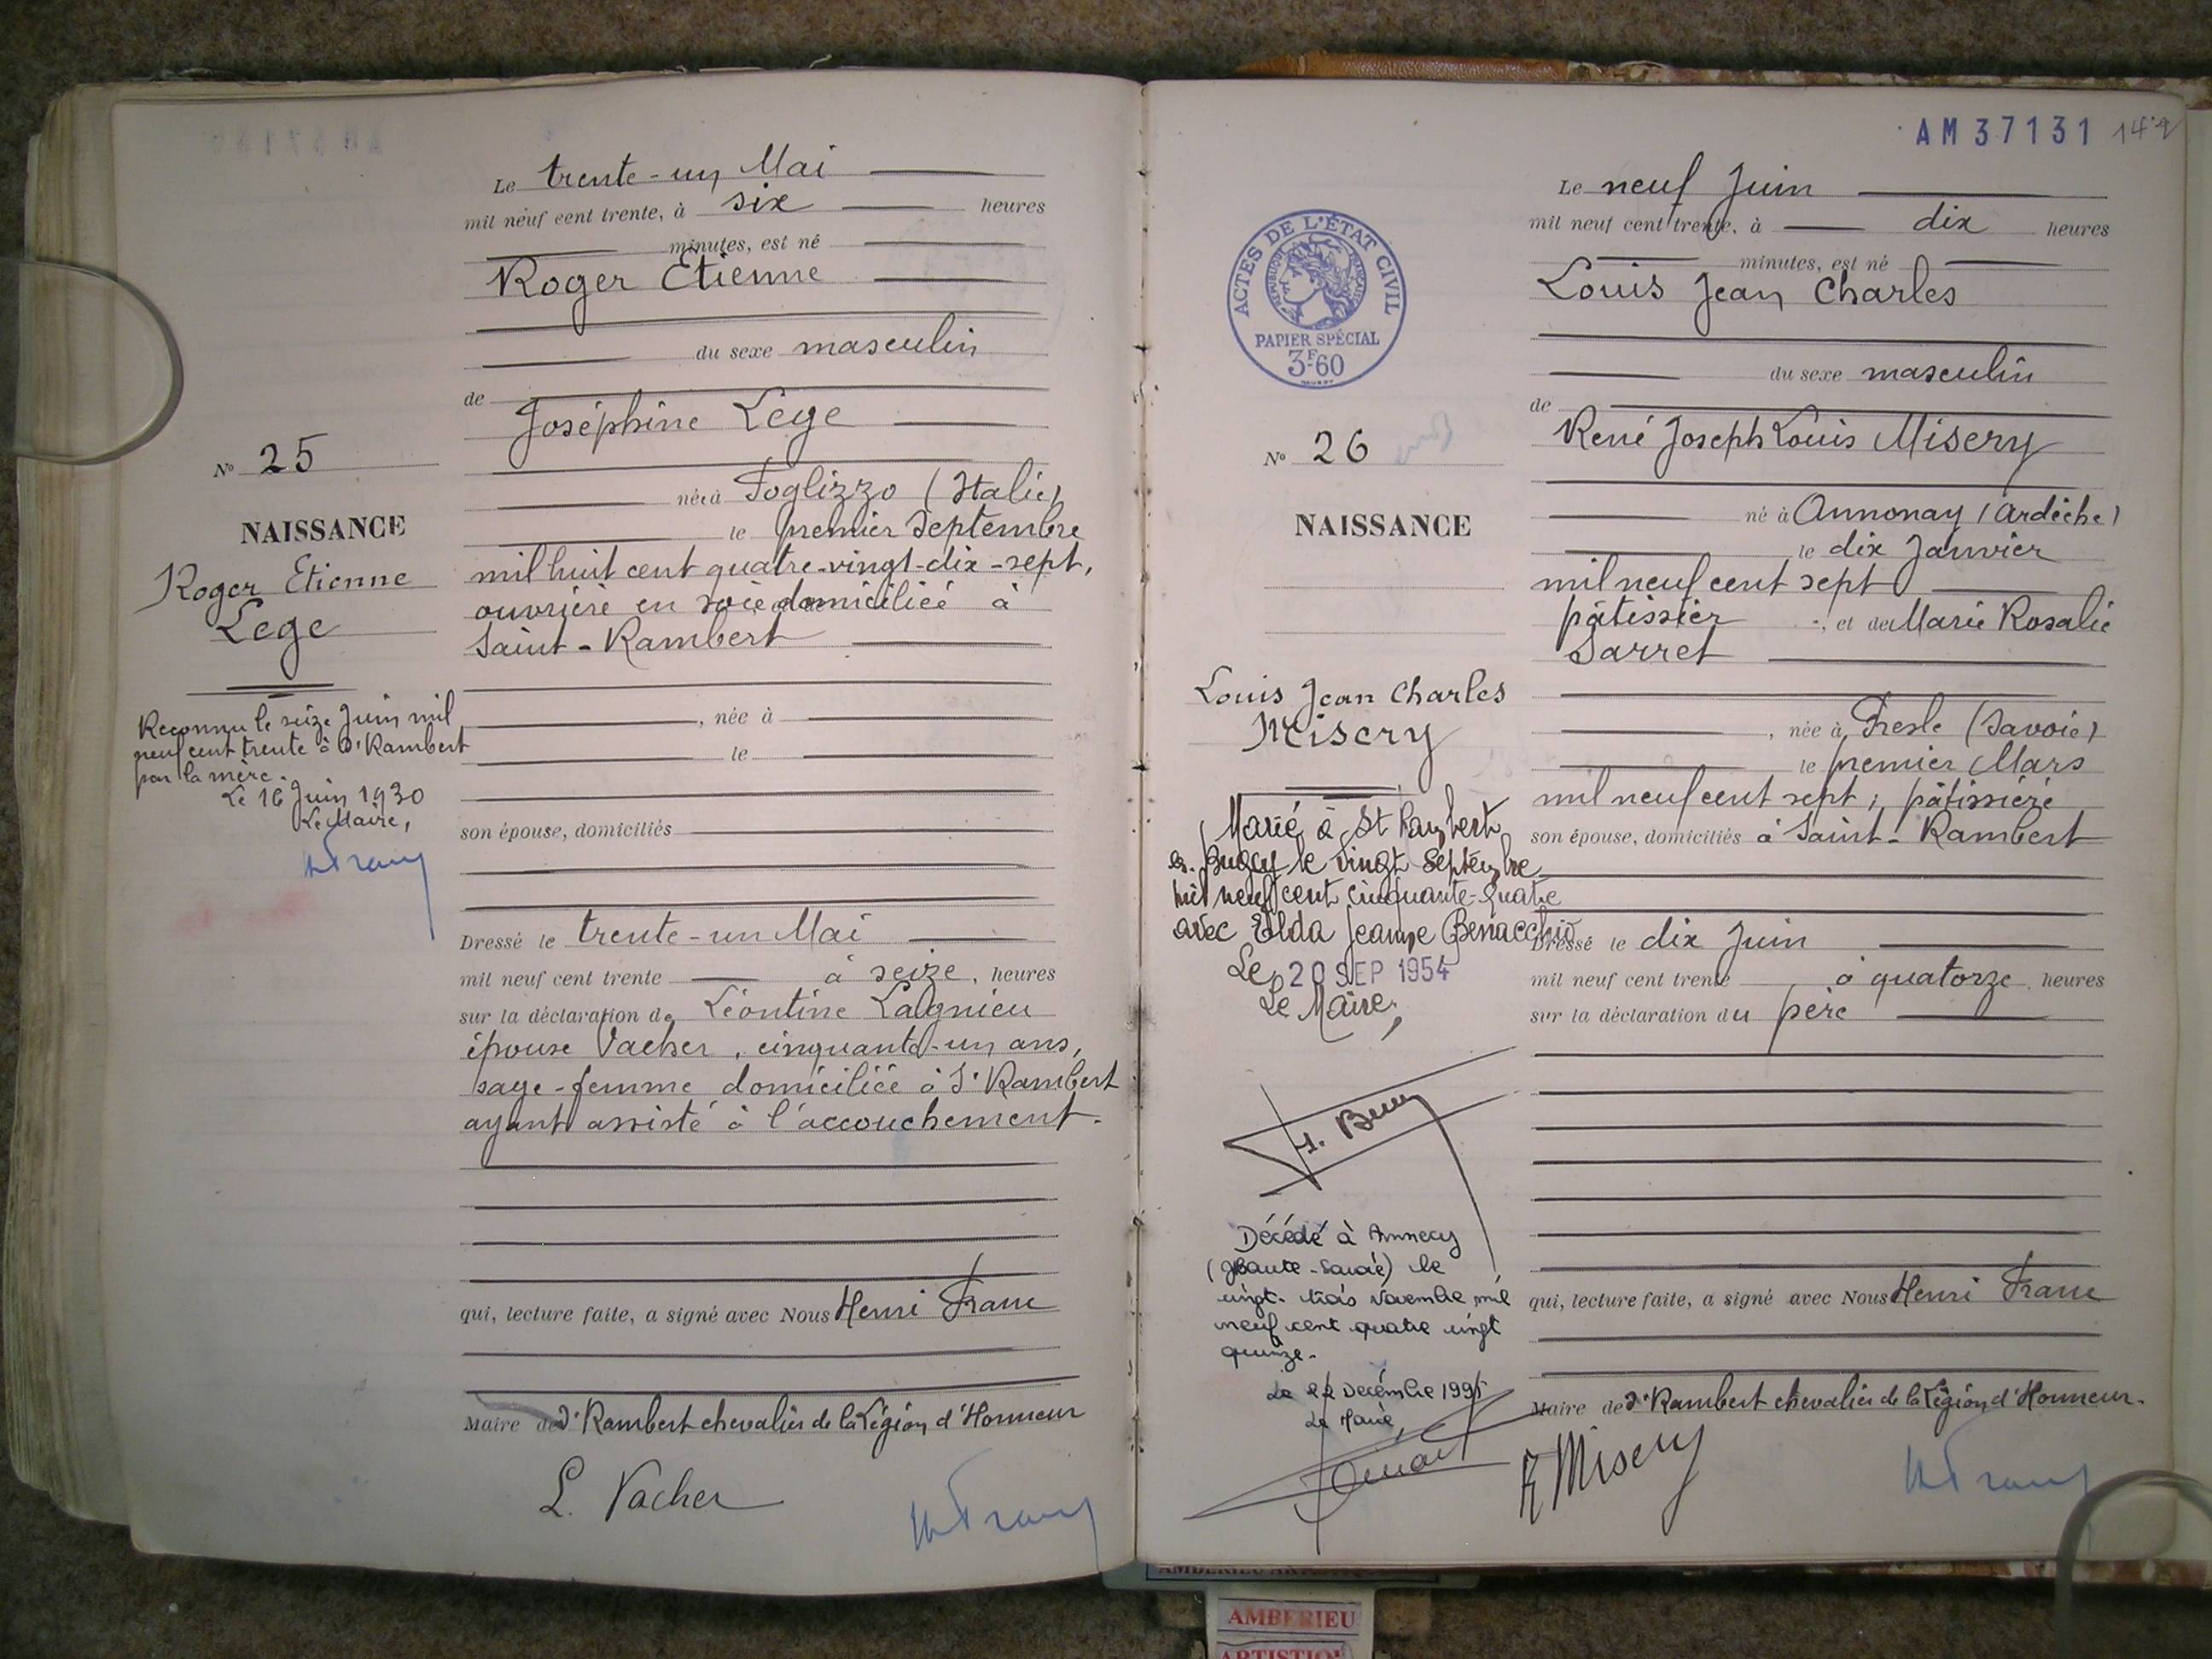 Le trente-un Mai
mil neuf cent trente, à six heures
minutes, est né
Roger Etienne
du sexe masculin
de
Joséphine Lege
née à Foglizzo (Italie)
le premier Septembre
mil huit cent quatre-vingt-dix-sept,
ouvrière en soie domiciliée à
Saint-Rambert
, née à
le
son épouse, domiciliés
Dressé le trente-un Mai
mil neuf cent trente à seize, heures
sur la déclaration de Léontine Lagnieu
épouse Vacher, cinquante-un ans,
sage-femme domiciliée à St Rambert
ayant assisté à l'accouchement.
qui, lecture faite, a signé avec Nous Henri Franc
Maire de St Rambert chevalier de la Légion d'Honneur
L. Vacher
N° 25
NAISSANCE
Roger Etienne
Lege
Reconnu le seize Juin mil
neuf cent trente à St Rambert
par la mère.
Le 16 Juin 1930
Le Maire,
AM 37131
ACTES DE L'ÉTAT CIVIL
RÉPUBLIQUE FRANÇAISE
PAPIER SPÉCIAL
3F60
N° 26
NAISSANCE
Louis Jean Charles
Misery
Marié à St Rambert
en Bugey le vingt Septembre
mil neuf cent cinquante-quatre
avec Elda Jeanne Benacchio
Le 20 SEP 1954
Le Maire,
Décédé à Annecy
(Haute-Savoie) le
vingt-trois Novembre mil
neuf cent quatre vingt
quinze.
Décembre 1995
Le Maire,
Le neuf Juin
mil neuf cent trente, à dix heures
minutes, est né
Louis Jean Charles
du sexe masculin
de
René Joseph Louis Misery
né à Annonay (Ardèche)
le dix Janvier
mil neuf cent sept
pâtissier, et de Marie Rosalie
Sarret
, née à (Savoie)
le premier Mars
mil neuf cent sept, pâtissière
son épouse, domiciliés à Saint-Rambert
Dressé le dix Juin
mil neuf cent trente à quatorze heures
sur la déclaration du père
qui, lecture faite, a signé avec Nous Henri Franc
Maire de St Rambert chevalier de la Légion d'Honneur.
R Misery
AMBERIEU